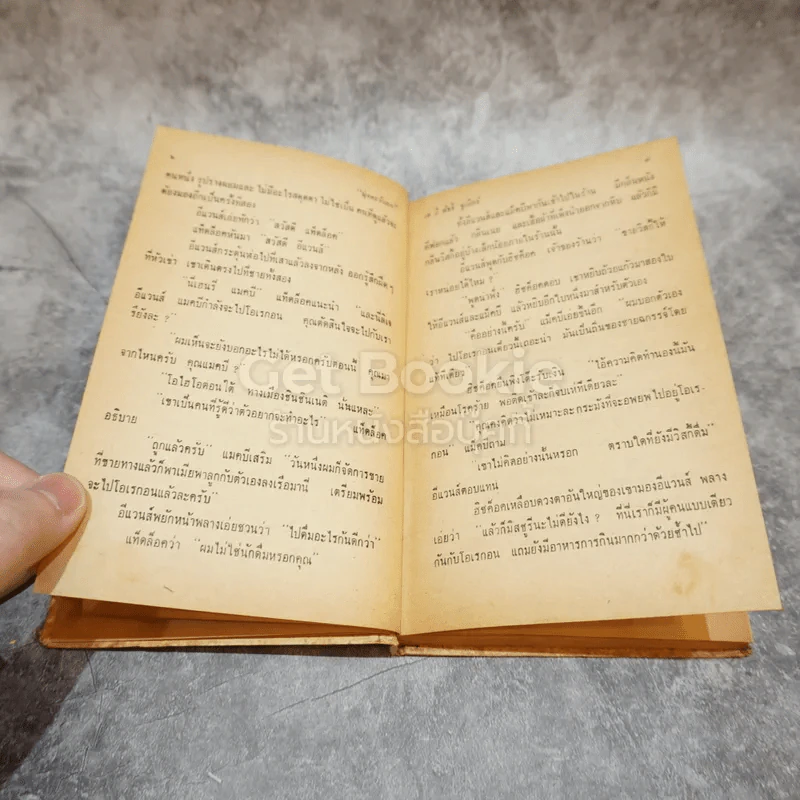 "บุกตะวันตก"
คนหนึ่ง รูปร่างผอมและ ไม่มีอะไรสะดุดตา ไม่ใช่เป็น คนที่ดูแล้วจะ
ต้องมองอีกเป็นครั้งที่สอง
อีแวนส์เอ่ยทักว่า "สวัสดี แท็ดล็อค"
แท็ดล็อคหันมา "สวัสดี อีแวนส์"
อีแวนส์กระตุ้นพ่อไปที่เสาแล้วลงจากหลัง ออกรู้สึกฝืด ๆ
ที่หัวเข่า เขาเดินตรงไปที่ชายทั้งสอง
"นี่เฮนรี่ แมคบี" แท็ดล็อคแนะนำ "และนี่ลิเจ
อีแวนส์ แมคบีกำลังจะไปโอเรกอน คุณตัดสินใจจะไปกับเรา
รึยังละ ?"
"ผมเห็นจะยังบอกอะไรไม่ได้หรอกครับตอนนี้ คุณมา
จากไหนครับ คุณแมคบี ?"
"โอไฮโอตอนใต้ ทางเมืองซินซินเนติ นั่นแหละ"
"เขาเป็นคนที่รู้ดีว่าตัวอยากจะทำอะไร" แท็ดล็อค
อธิบาย
"ถูกแล้วครับ" แมคบีเสริม "วันหนึ่งผมก็จัดการขาย
ที่ขายทางแล้วก็พาเมียพาลูกกับตัวเองลงเรือมานี่ เตรียมพร้อม
จะไปโอเรกอนแล้วละครับ"
อีแวนส์พยักหน้าพลางเอ่ยชวนว่า "ไปดื่มอะไรกันดีกว่า"
แท็ดล็อคว่า "ผมไม่ใช่นักดื่มหรอกคุณ"
เอ บี
ทั้งอีแวนส์และแม็คบีพากันเข้าไปในร้าน มีกลิ่นหนัง
อีแวนส์พูดกับฮิชค็อค เจ้าของร้านว่า "ขายวิสกี้ให้
เราหน่อยได้ไหม ?"
ฮิชค็อคตอบ เขาหยิบถ้วยแก้วมาสองใบ
ให้อีแวนส์และแม็คบี แล้วหยิบอีกใบหนึ่งมาสำหรับตัวเอง
"คืออย่างนี้ครับ" แม็คบีเอยขึ้นอีก "ผมบอกตัวเอง
ว่า ไปโอเรกอนเดี๋ยวนี้เถอะน่า มันเป็นถิ่นของชายฉกรรจ์โดย
แท้ทีเดียว"
ฮิชค็อคยืนฟังได้ยิน "ไอ้ความคิดทำนองนี้มัน
เหมือนโรคร้าย พอติดเข้าละก็จับให้ทีเดียวละ"
"คุณคงคิดว่าไม่เหมาะละกระมังที่จะอพยพไปอยู่โอเร-
กอน" แม็คบีถาม
"เขาไม่คิดอย่างนั้นหรอก ตราบใดที่ยังมีวิสกี้ดื่ม"
อีแวนส์ตอบแทน
ฮิชค็อคเหลือบดวงตาอันใหญ่ของเขามองอีแวนส์ พลาง
เอ่ยว่า "แล้วก็มิสซูรีนะไม่ดียังไง ? ที่นี่เราก็มีผู้คนแบบเดียว
กันกับโอเรกอน แถมยังมีอาหารการกินมากกว่าด้วยซ้ำไป"
Get Bookie
ร้านหนังสือบุ๊คกี้